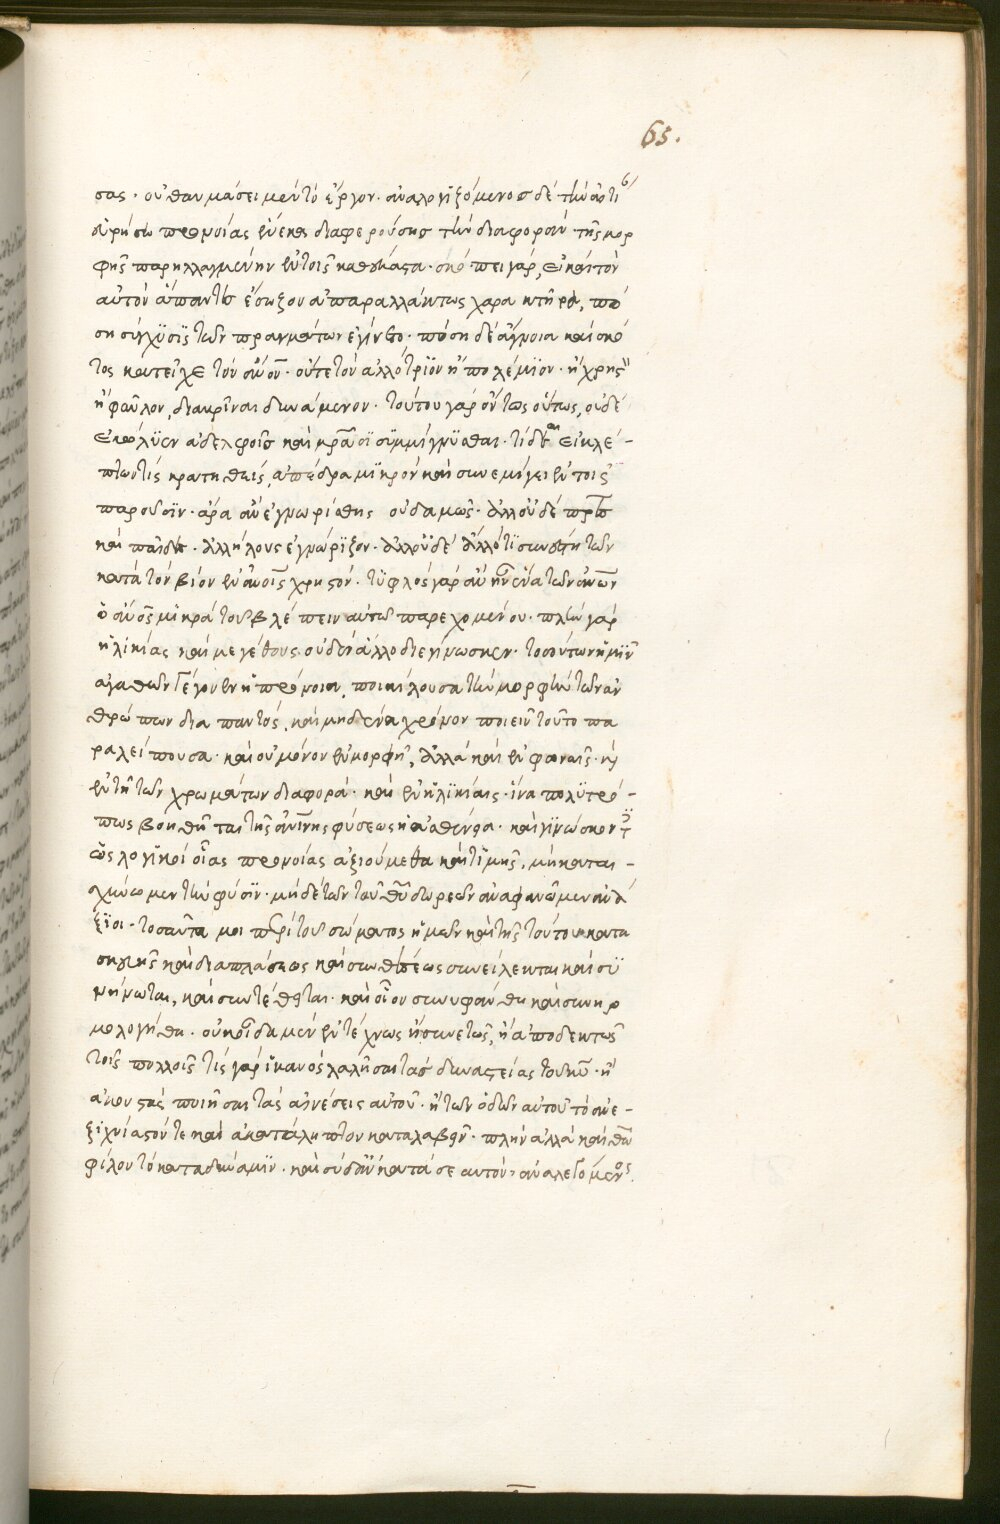 65.
σας · οὐ θαυμάσει μὲν τὸ ἔργον · ἀναλογϊζόμενος δὲ τὴν ἀρτι
προνοίας ἕνεκα διαφερούσης τὴν διαφορὰν τῆς μορ
φῆς παρηλλαγμένην ἐν τοῖς καθέκαστα · σκόπει γάρ, εἰ κατὰ τὸν
αὐτὸν ἅπαντες ἔσωζον ἀπαραλλάκτως χαρακτῆρα, πό
ση σύγχϋσϊς τῶν πραγμάτων ἐγίνετο · πόση δὲ ἄγνοια καὶ σκό
τος κατεῖχε τὸν · οὔτε τὸν ἀλλότρϊον ἢ πολέμϊον · ἢ χρηστὸν
ἢ φαῦλον, διακρῖναι δυνάμενον · τούτου γὰρ ὄντως οὕτως, οὐδὲ
ἐκώλϋεν ἀδελφοῖς καὶ συμμίγνϋσθαι · τί δ' ἂν εἰ κλέ-
πτων τὶς κρατηθεὶς, ἀπέδρα μϊκρὸν καὶ συνεμίγει ἐν τοῖς
παροῦσϊν · ἆρα ἂν ἐγνωρίσθης οὐδαμῶς · ἀλλ' οὐδὲ πρς
καὶ παῖδες · ἀλλήλους ἐγνώρϊζον · ἀλλ' οὐδὲ ἄλλό τϊ συνέστη τῶν
κατὰ τὸν βίον ἐν ἀνοις χρηστόν · τϋφλὸς γὰρ ἂν ἦν ἕνα τῶν ἀνων
ὁ ανος μϊκρὰ τοῦ βλέπειν αὐτῶ παρεχομένου · πλὴν γὰρ
ἡλϊκίας καὶ μεγέθους οὐδὲν ἄλλο διεγίνωσκεν · τοσούτων ἡμῖν
ἀγαθῶν γέγονεν ἡ πρόνοια, ποικίλουσα τὴν μορφὴν τῶν ἀν
θρώπων διὰ παντός, καὶ μηδένα χρόνον ποιεῖν τοῦτο πα
ραλείπουσα · καὶ οὐ μόνον ἐν μορφῇ, ἀλλὰ καὶ ἐν φωναῖς · καὶ
ἐν τῇ τῶν χρωμάτων διαφορᾷ · καὶ ἐν ἡλϊκίαις · ἵνα πολϋτρό-
πως βοηθῆται τῆς ἀνίνης φύσεως ἡ ἀσθένεια · καὶ γϊνώσκοντες
ὡς λογϊκοὶ οἵας προνοίας ἀξιούμεθα καὶ τϊμῆς, μὴ καται-
σχύνωμεν τὴν φύσϊν · μὴδὲ τῶν τοῦ θυ δωρεῶν ἀναφανῶμεν ἀνά
ξϊοι · τοσαῦτα μοι περὶ τοῦ σώματος ἡμῶν καὶ τῆς τούτου κατα
σκευῆς καὶ διαπλάσεως καὶ συνθέσεως συνείλεκται καὶ σϋ
μήνωται, καὶ συντέθηται · καὶ οἷον συνυφάνθη καὶ συνηρ
μολογήθη · οὐκ οἶδα μὲν ἐντέχνως ἢ συνετῶς, ἢ ἀποδεκτῶς
τοῖς πολλοῖς τίς γὰρ ἱκανὸς λαλῆσαι τὰς δυναστείας τοῦ κυ · ἢ
ἀκουστὰς ποιῆσαι τὰς αἰνέσεις αὐτοῦ · ἢ τῶν ὁδῶν αὐτοῦ τὸ ἀνε-
ξιχνίαστόν τε καὶ ἀκατάληπτον καταλαβεῖν · πλὴν ἀλλὰ καὶ θω
φίλον τὸ κατὰ δύναμϊν · καὶ σὺ δ' ἂν κατὰ σεαυτὸν, ἀναλεγόμενος